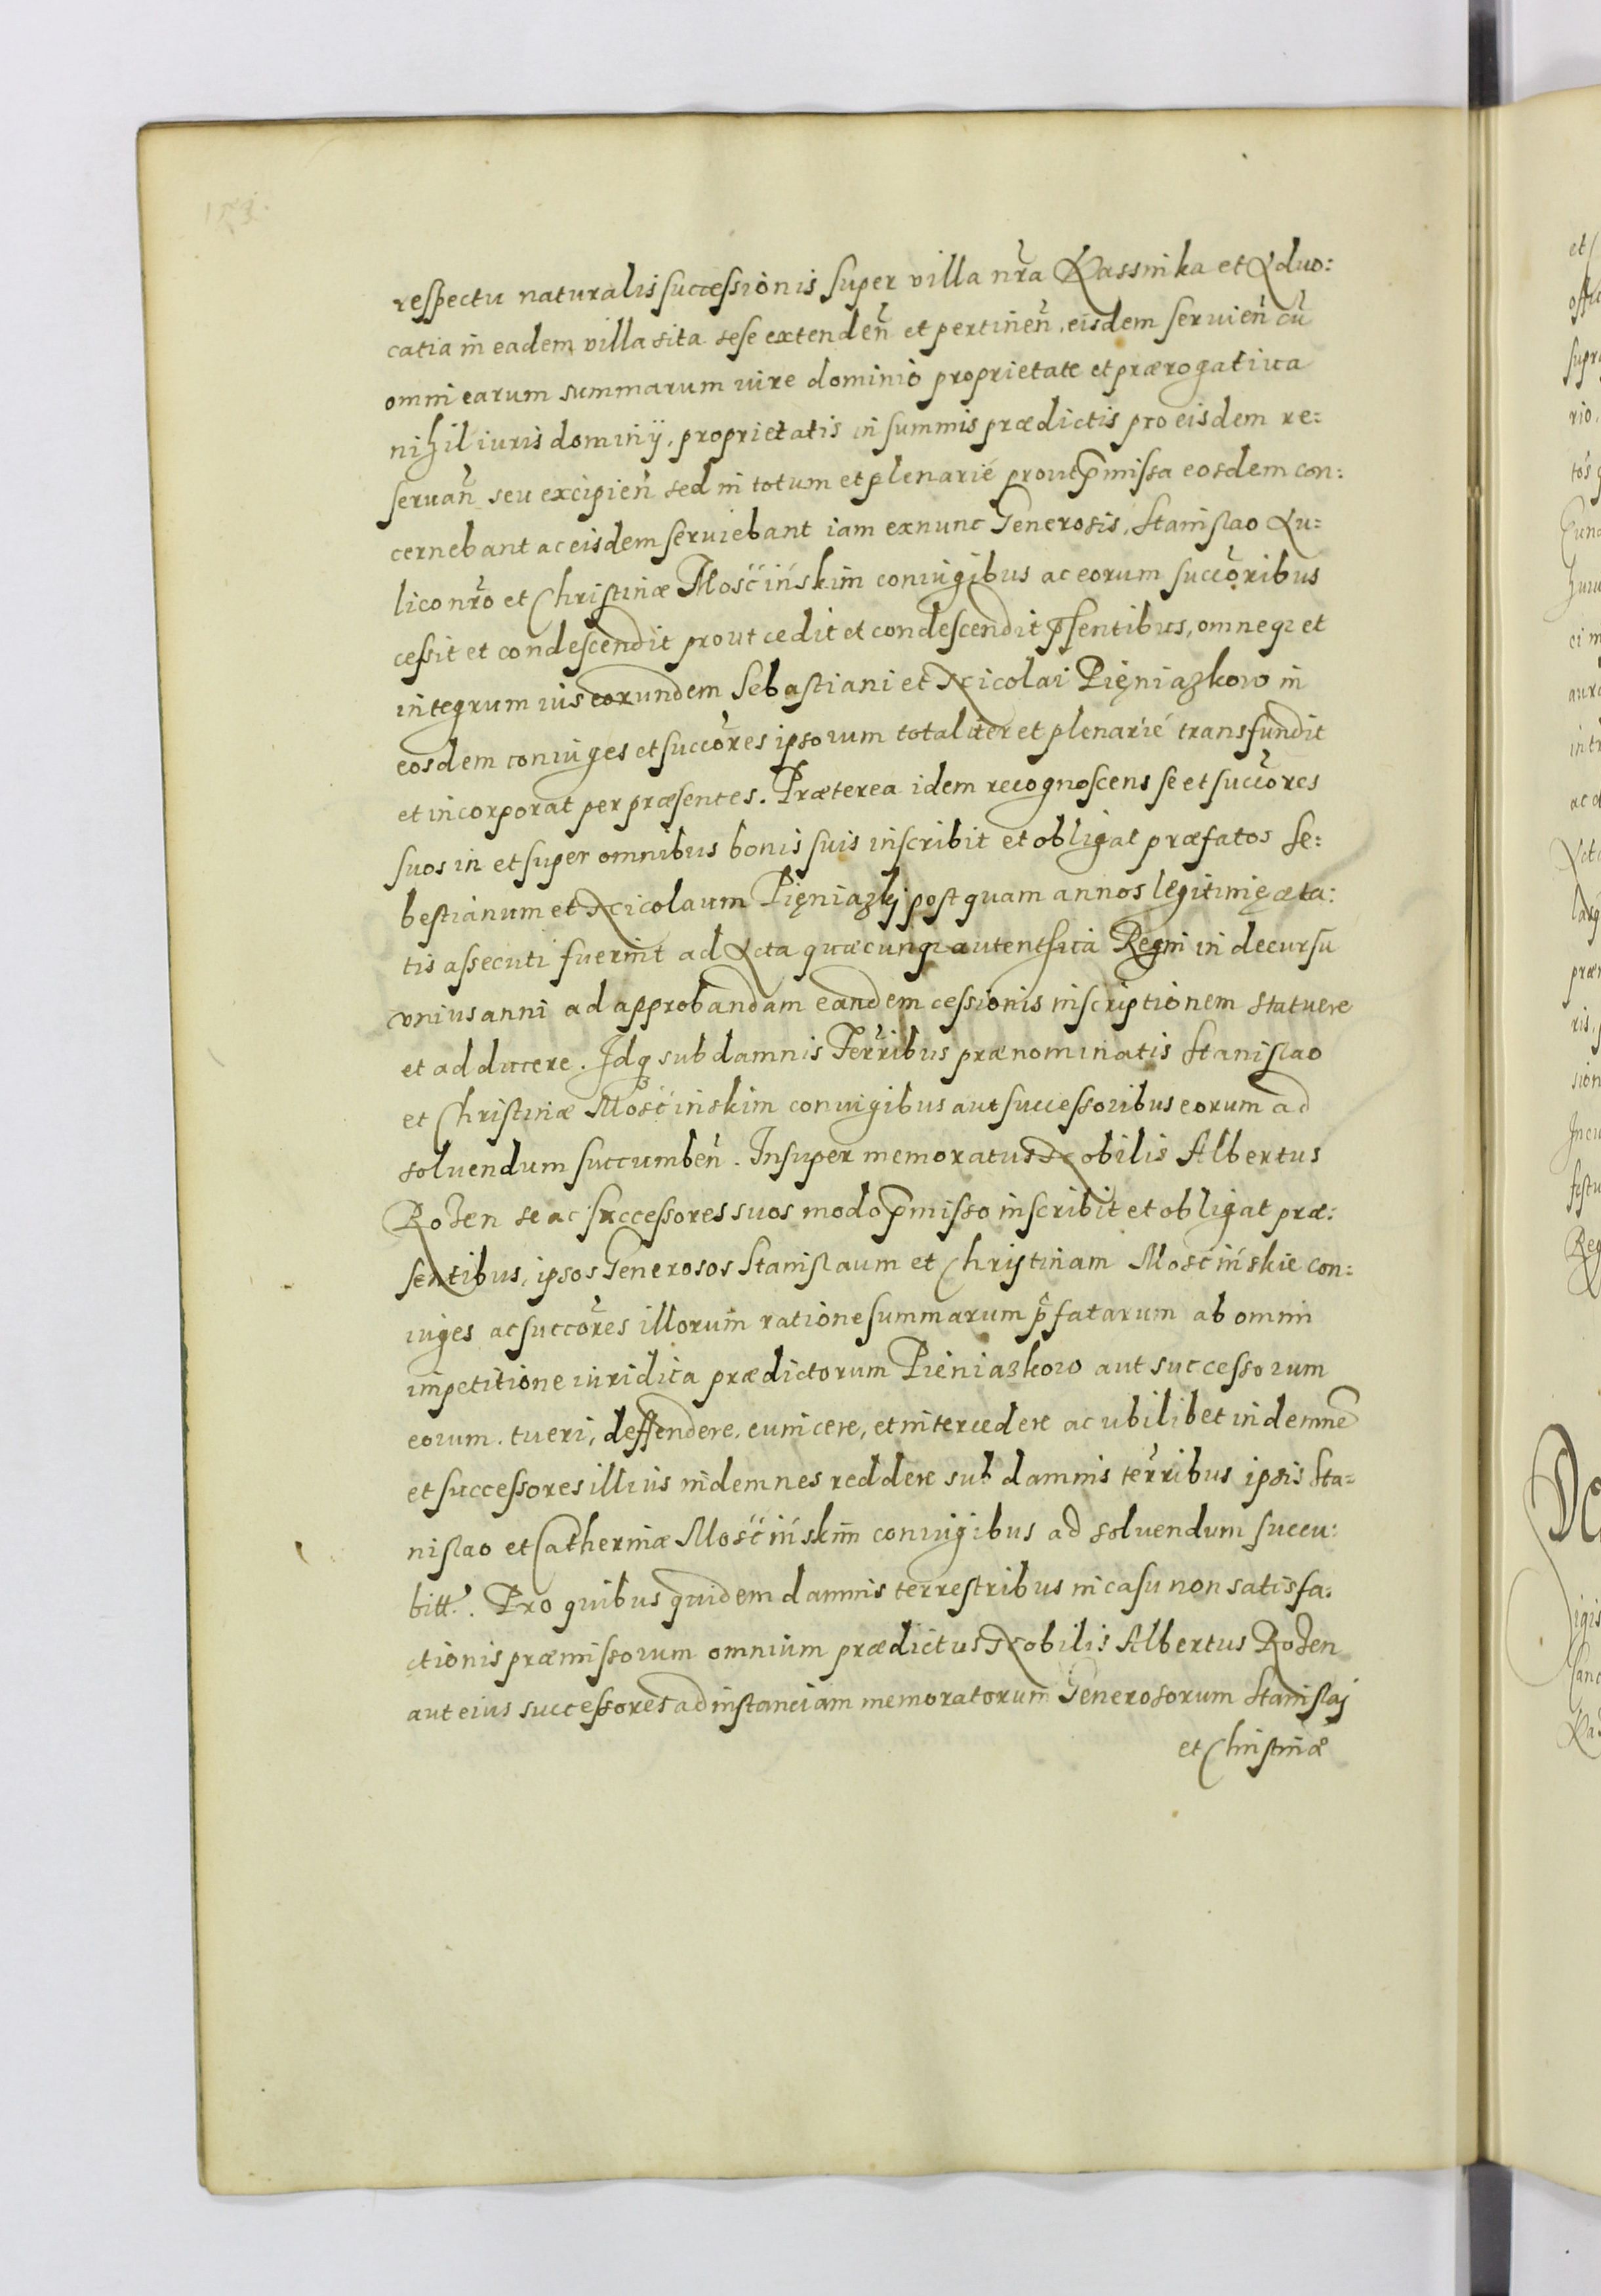 respectu naturalis successionis super villa nr̃a Kassinka et Aduo:
catia in eadem villa sita sese extendeñ et pertineñ, eisdem seruieñ cũ
omni earum summarum iure dominio proprietate et prærogatiua
nihil iuris dominÿ, proprietatis in summis prædictis pro eisdem re:
seruañ seu excipieñ sed in totum et plenarié prout p̃missa eosdem con:
cernebant ac eisdem seruiebant iam exnunc Generosis, Stanislao Au:
lico nr̃o et Christinæ Mośćińskim coniugibus ac eorum succõribus
cessit et condescendit prout cedit et condescendit p̃sentibus, omneqȝ et
integrum ius eorundem Sebastiani et Nicolai Pięniazkow in
eosdem coniuges et succõres ipsorum totaliter et plenarié transfundit
et incorporat per præsentes. Præterea idem recognoscens se et succõres
suos in et super omnibus bonis suis inscribit et obligat præfatos Se:
bestianum et Nicolaum Pięniazkj postquam annos legitimę æta:
tis assecuti fuerint ad Acta quæcunqȝ autenthica Regni in decursu
vnius anni ad approbandam eandem cessionis inscriptionem statuere
et adducere. Idqȝ sub damnis Terr̃ibus prænominatis Stanislao
et Christinæ Mośćinskim coniugibus aut successoribus eorum ad
soluendum succumbeñ. Insuper memoratus Nobilis Albertus
Rożen se ac successores suos modo p̃misso inscribit et obligat præ:
sentibus, ipsos Generosos Stanislaum et Christinam Mośćińskie con:
iuges ac succõres illorum ratione summarum p̃fatarum ab omni
impetitione iuridica prædictorum Pieniazkow aut successorum
eorum, tueri, deffendere, euincere, et intercedere ac ubilibet indemnẽ
et successores illius indemnes reddere sub damnis terr̃ibus ipsis Sta=
nislao et Catherinæ Mośćińskim coniugibus ad soluendum succu:
bitt̃. Pro quibus quidem damnis terrestribus in casu non satisfa:
ctionis præmissorum omnium prædictus Nobilis Albertus Rożen
aut eius successores ad instanciam memoratorum Generosorum Stanislaj
et Christinæ